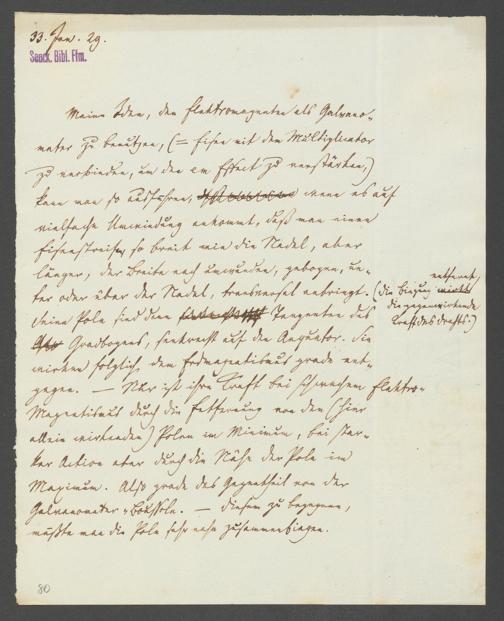 33. Jan. 29.
Senck. Bibl. Ffm.
Meine Idee, den Elektromagneten als Galvano-
meter zu benutzen, (= Eisen mit dem Multiplicator
zu verbinden, um den em Effect zu verstärken,)
kann man so ausführen, wenn es auf
vielfache Umwindung ankommt, daß man einen
Eisenstreifen, so breit wie die Nadel, aber
länger, der Breite nach umwunden, gebogen, un-
ter oder über der Nadel, transversal anbringt.
(die Biegung entfernt,
die gegenwirkende
Kraft des Drahts.)
Seine Pole sind dann Tangenten des
Gradbogens, senkrecht auf den Aequator. Sie
wirken folglich dem Erdmagnetismus grade ent-
gegen. — Nur ist ihre Kraft bei schwachem Elektro-
Magnetismus durch die Entfernung von den (hier
allein wirkenden) Polen im Minimum, bei star-
ker Action aber durch die Nähe der Pole im
Maximum. Also grade das Gegentheil von der
Galvanometer-Boussole. — Diesem zu begegnen,
müßte man die Pole sehr nahe zusammenbiegen.
80